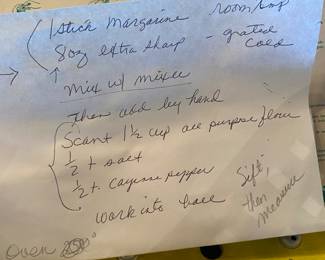 1 stick margarine room temp
8oz extra sharp - grated
cold
Mix w/ mixer
Then add by hand
Scant 1 1/2 cup all purpose flour
1/2 t salt
1/2 t. cayenne pepper
work into ball
Sift,
then
measure
Oven